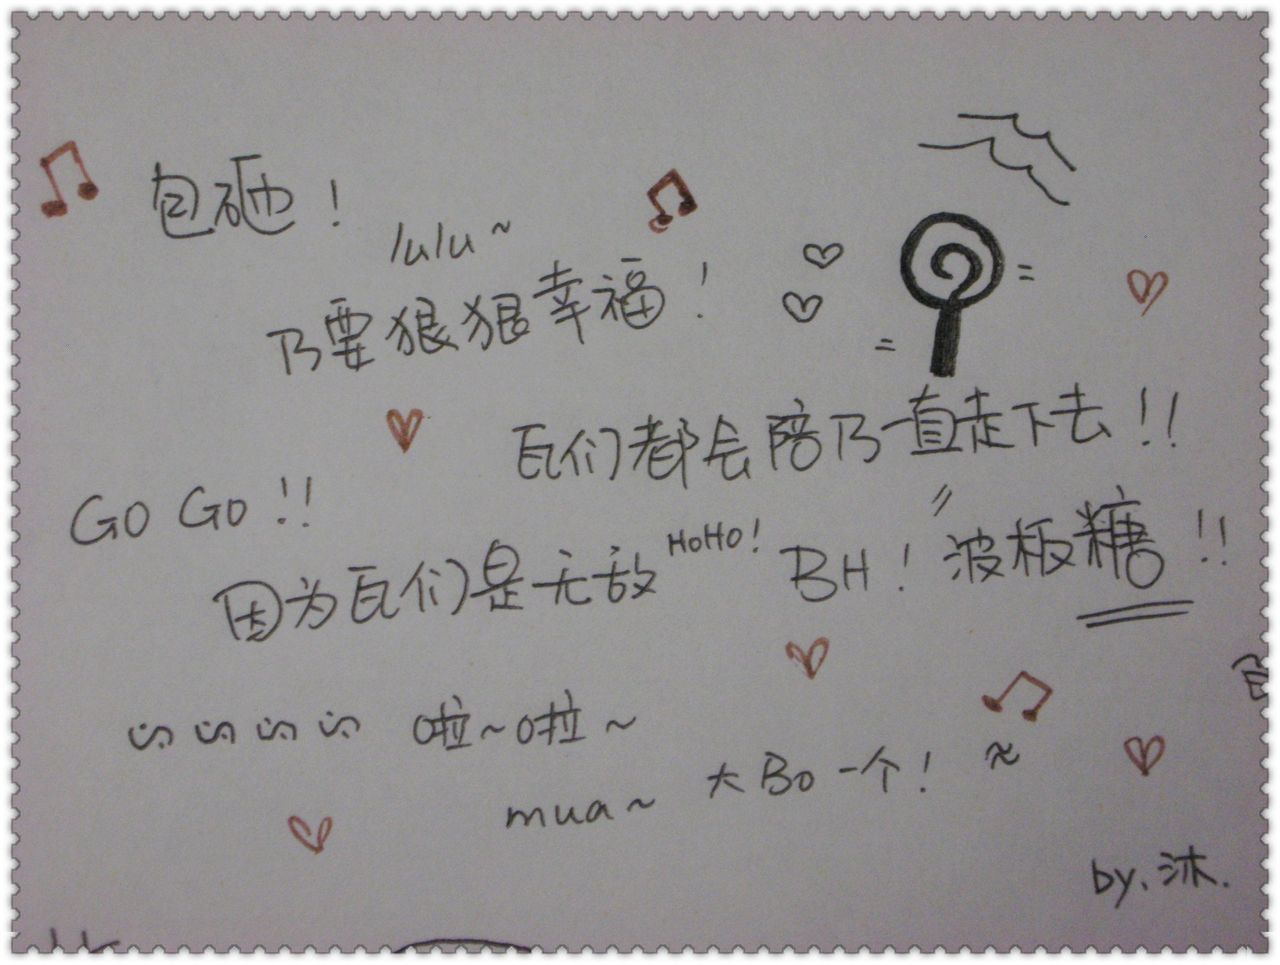 包砸！
lulu~
乃要狠狠幸福！
瓦们都会陪乃一直走下去!!
GO GO!!
因为瓦们是无敌 HOHO! BH! 波板糖!!
啦~啦~
mua~ 大Bo一个!
by.沐.